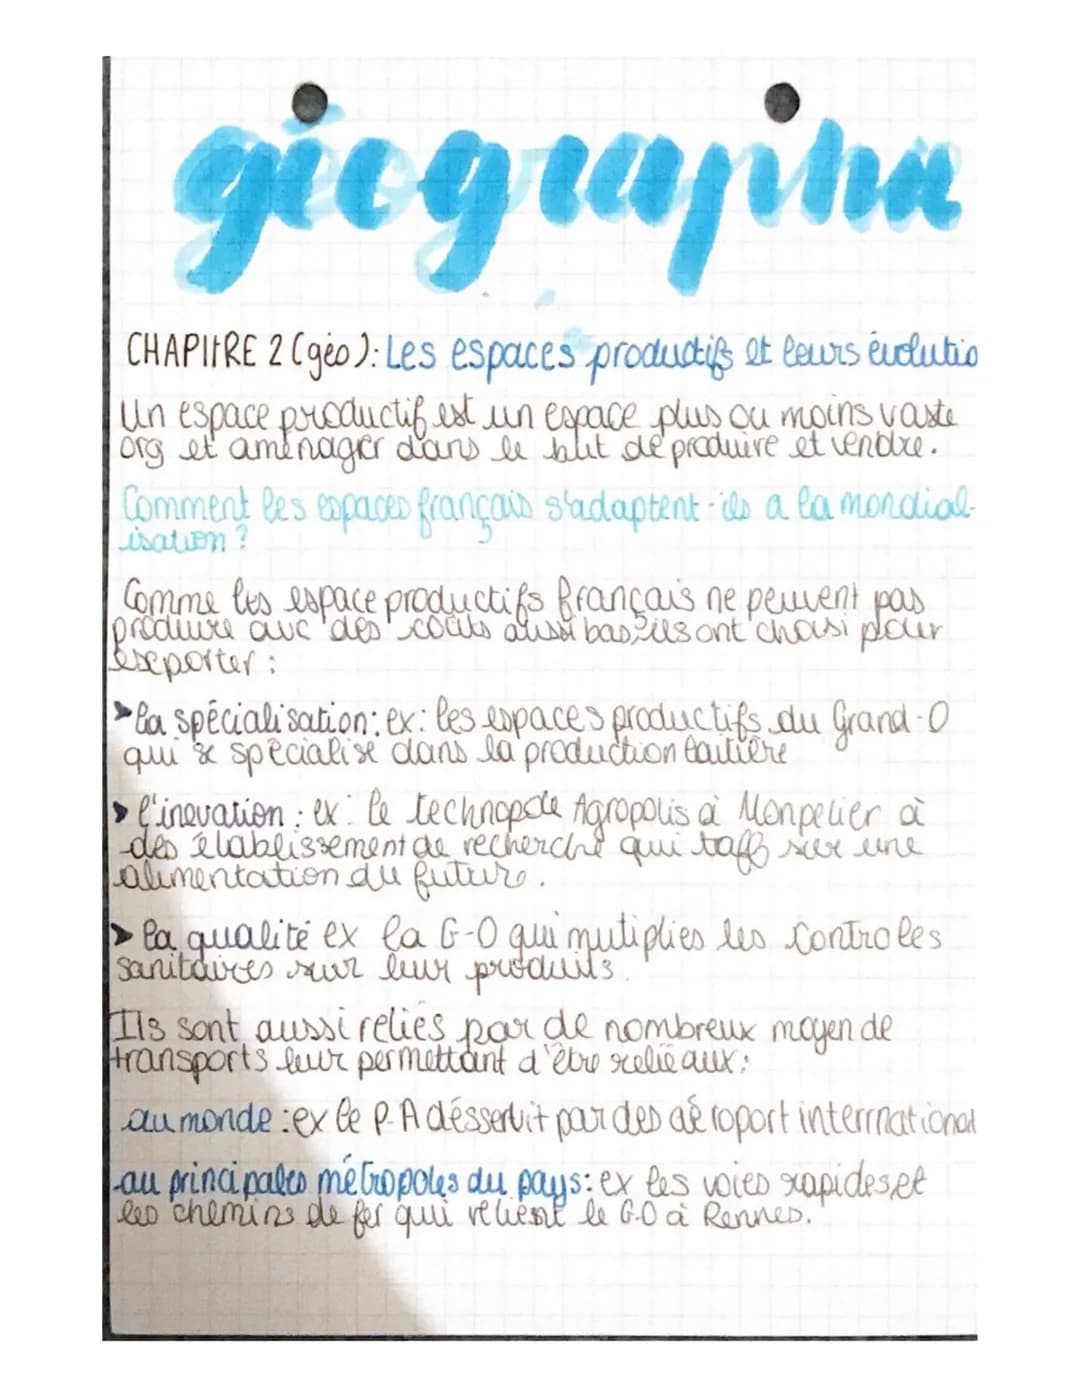 géographie
CHAPITRE 2 (géo): Les espaces productifs et leurs évolutio
Un espace productif est un espace plus ou moins vaste
org et aménager dans le but de produire et vendre.
Comment les espaces français s'adaptent-ils a la mondial-
isation?
Comme les espace productifs français ne peuvent pas
produire avc des coûts aussi bas, ils ont choisi pour
exporter:
➤ la spécialisation: ex: les espaces productifs du Grand-O
qui se spécialise dans la production laitière
➤ l'inovation: ex: le technopole Agropolis à Monpelier à
des établissement de recherche qui taff sur une
alimentation du futur.
➤ la qualité ex la G-O qui mutiplies les controles
sanitaires sur leur produits.
Ils sont aussi reliés par de nombreux moyen de
transports leur permettant d'être relié aux:
au monde: ex le P-A désservit par des aéroport interrnational
-au principales métropoles du pays: ex les voies rapides et
les chemins de fer qui relient le G.O à Rennes.